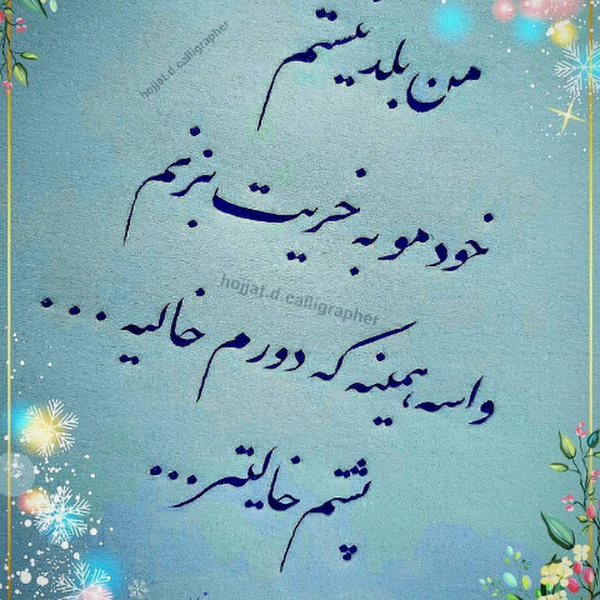 hojjat.d.calligrapher
من بلد نیستم
خودمو به خریت بزنم
hojjat.d.calligrapher
واسه همینه که دورم خالیه ...
پشتم خالیتر ...